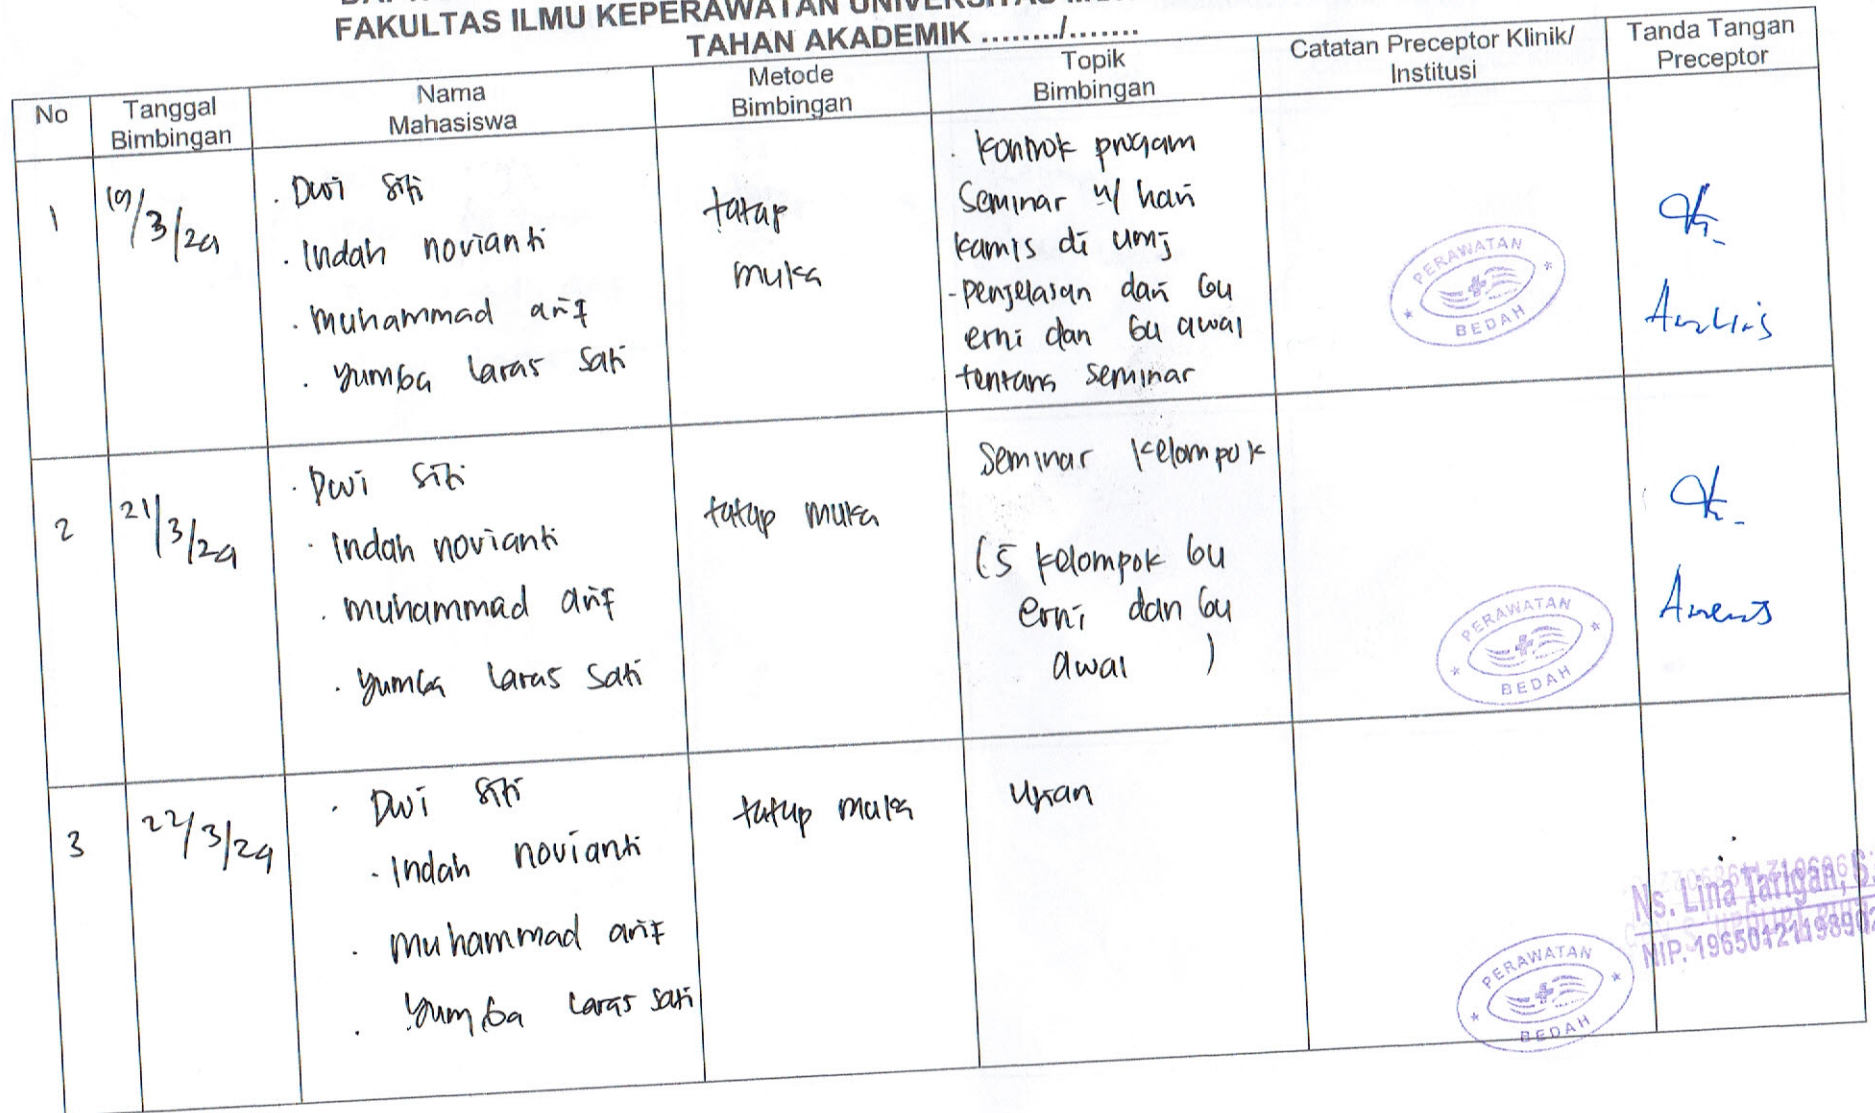 FAKULTAS ILMU KEPERAWATAN
TAHAN AKADEMIK ......../.......
No
Tanggal
Bimbingan
Nama
Mahasiswa
Metode
Bimbingan
Topik
Bimbingan
Catatan Preceptor Klinik/
Institusi
Tanda Tangan
Preceptor
1
19/3/24
. Dwi Siti
. Indah novianti
. Muhammad arif
. Yumba Laras Sati
tatap
muka
. kontrok progam
Seminar u/ hari
kamis di umj
- penjelasan dari bu
erni dan bu awal
tentang seminar
PERAWATAN
BEDAH
2
21/3/24
. Dwi Siti
. Indah novianti
. muhammad arif
. Yumba Laras Sati
tatap muka
Seminar kelompok
(5 kelompok bu
erni dan bu
awal )
PERAWATAN
BEDAH
3
22/3/24
. Dwi Siti
. Indah novianti
. muhammad arif
. Yumba Laras Sati
tatap muka
Ujian
Ns. Lina Tarigan, S.
PERAWATAN
BEDAH